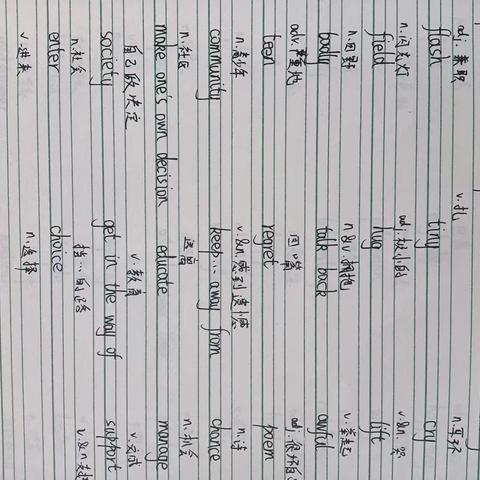 adj. 兼职 v. 扎 n. 耳环
flash tiny cry
n. 闪光灯 adj. 极小的 v.&n. 哭
field hug lift
n. 田野 n&v. 拥抱 v. 举起
talk back awful
adv. 重地 回嘴 adj. 很坏的
teen regret poem
n. 青少年 v.&n. 感到遗憾 n. 诗
community keep... away from chance
n. 社区 n. 机会
make one's own decision educate manage
自己做决定 v. 教育 v. 完成
society get in the way of support
n. 社会 挡…的路 v.&n. 支
enter choice
v. 进来 n. 选择